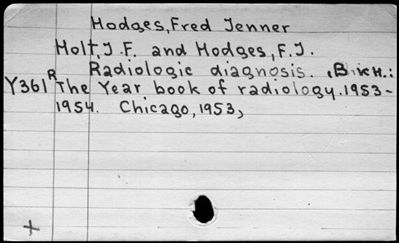 Hodges, Fred Jenner
Holt, J.F. and Hodges, F.J.
Radiologic diagnosis.
Y361 R The Year book of radiology. 1953-
1954. Chicago, 1953,
+